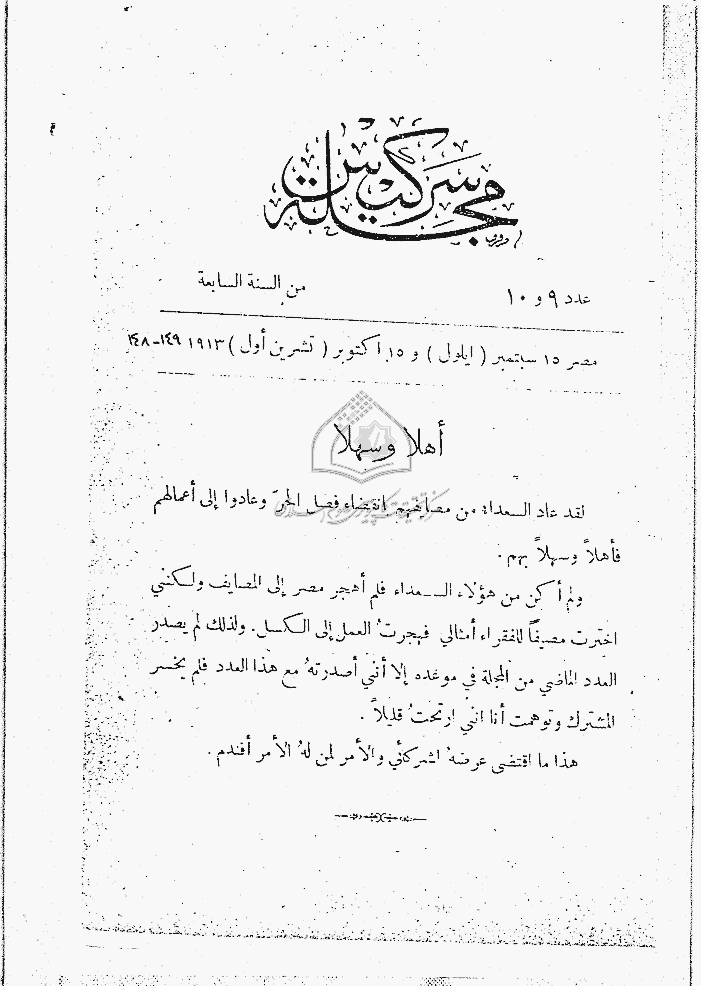 مجلة سركيس
عدد ٩ و ١٠ من السنة السابعة
مصر ١٥ سبتمبر ( ايلول ) و ١٥ اكتوبر ( تشرين أول ) ١٩١٣ ١٤٩-١٤٨
أهلا وسهلا
لقد عاد السعداء من مصايفهم بانقضاء فصل الحرّ وعادوا إلى أعمالهم
فأهلاً وسهلاً بهم .
ولم أكن من هؤلاء السعداء فلم أهجر مصر إلى المصايف ولكنني
اخترت مصيفاً للفقراء أمثالي فهجرتُ العمل إلى الكسل . ولذلك لم يصدر
العدد الماضي من المجلة في موعده إلا أنني أصدرتهُ مع هذا العدد فلم يخسر
المشترك وتوهمت أنا انني ارتحتُ قليلاً .
هذا ما اقتضى عرضهُ لشركائي والأمر لمن لهُ الأمر أفندم .